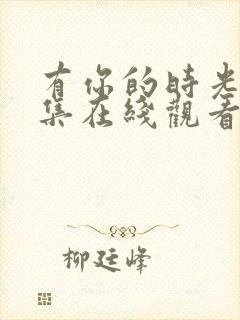 有你的時光
集在綫觀看
柳廷峰